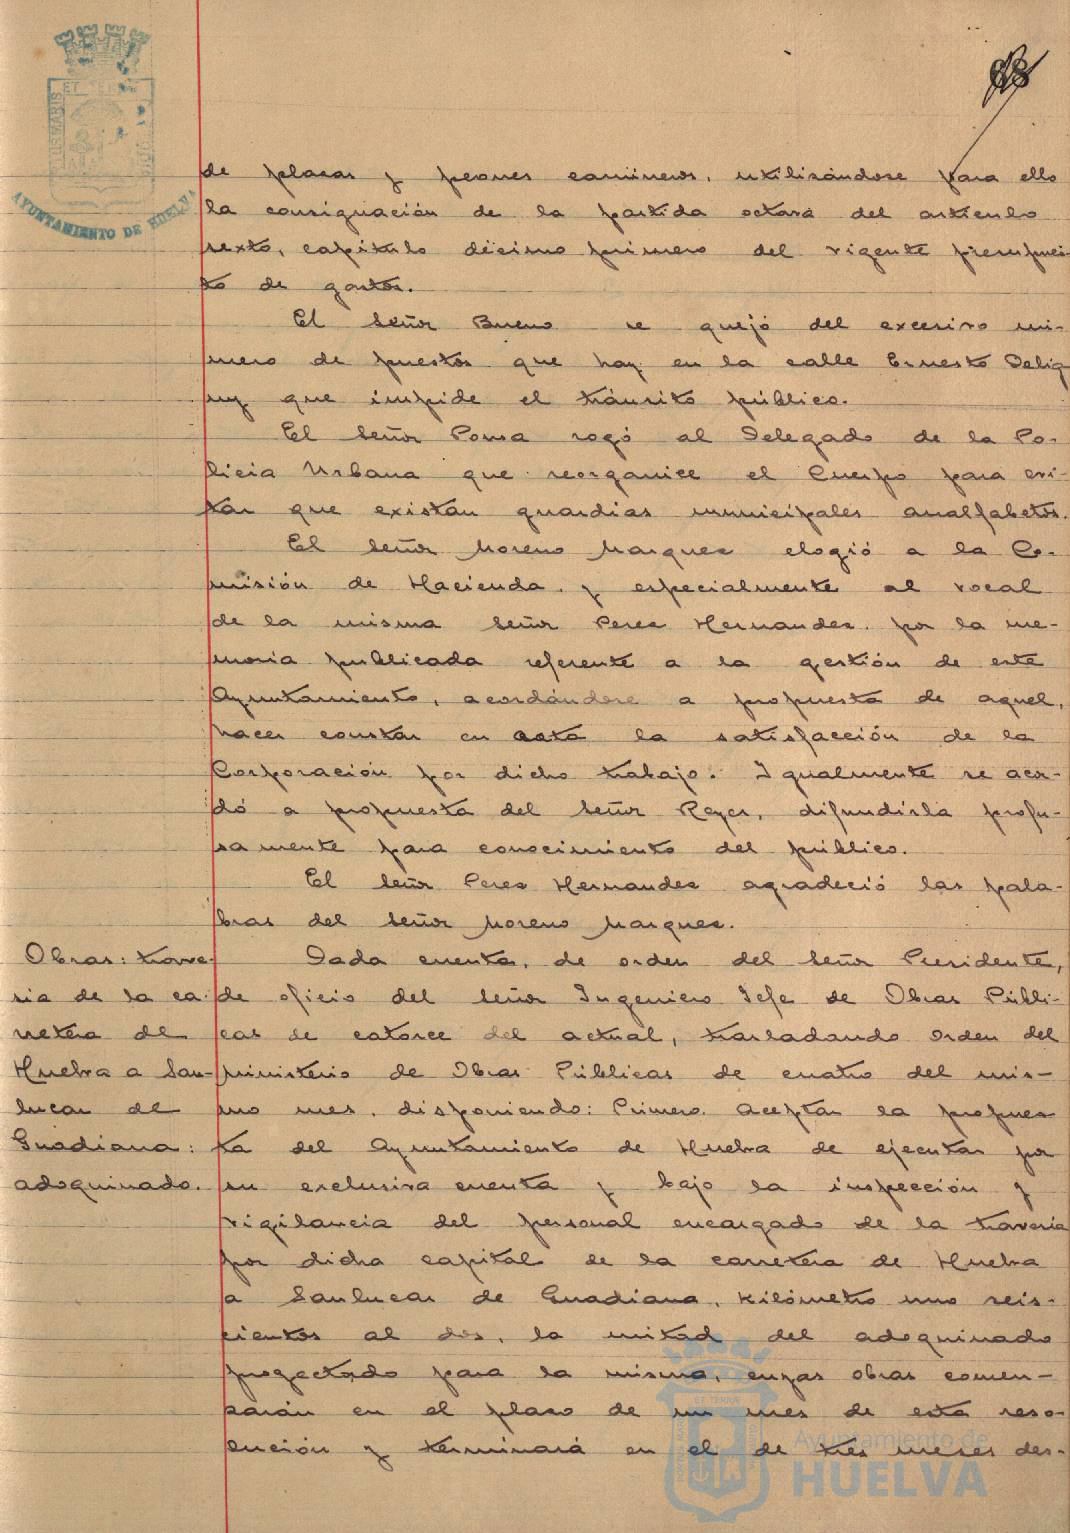 ET TERRAE
AYUNTAMIENTO DE HUELVA
de plazas y peones camineros, utilizándose para ello
la consignación de la partida octava del artículo
sexto, capítulo décimo primero del vigente presupues-
to de gastos.
El Señor Bueno se quejó del excesivo nú-
mero de puestos que hay en la calle Ernesto Delig
ny que impide el tránsito público.
El Señor Ponsa rogó al Delegado de la Po-
licia Urbana que reorganice el Cuerpo para evi-
tar que existan guardias municipales analfabetos.
El Señor Moreno Marquez elogió a la Co-
misión de Hacienda y especialmente al vocal
de la misma Señor Perez Hernandez por la me-
moria publicada referente a la gestión de este
Ayuntamiento, acordándose a propuesta de aquel,
hacer constar en acta la satisfacción de la
Corporación por dicho trabajo. Igualmente se acor-
dó a propuesta del Señor Reyes, difundirla profu-
samente para conocimiento del público.
El Señor Perez Hernandez agradeció las pala-
bras del Señor Moreno Marquez.
Obras: trave-
sia de la ca-
rretera de
Huelva a San-
lucar de
Guadiana:
adoquinado.
Dada cuenta, de orden del Señor Presidente,
de oficio del Señor Ingeniero Jefe de Obras Públi-
cas de catorce del actual, trasladando orden del
Ministerio de Obras Públicas de cuatro del mis-
mo mes, disponiendo: Primero. Aceptar la propues
ta del Ayuntamiento de Huelva de ejecutar por
su exclusiva cuenta y bajo la inspección y
vigilancia del personal encargado de la travesia
por dicha capital de la carretera de Huelva
a Sanlucar de Guadiana, kilómetro uno seis-
cientos al dos, la mitad del adoquinado
proyectado para la misma, cuyas obras comen-
zarán en el plazo de un mes de esta reso-
lución y terminará en el de tres meses des-
Ayuntamiento de
HUELVA